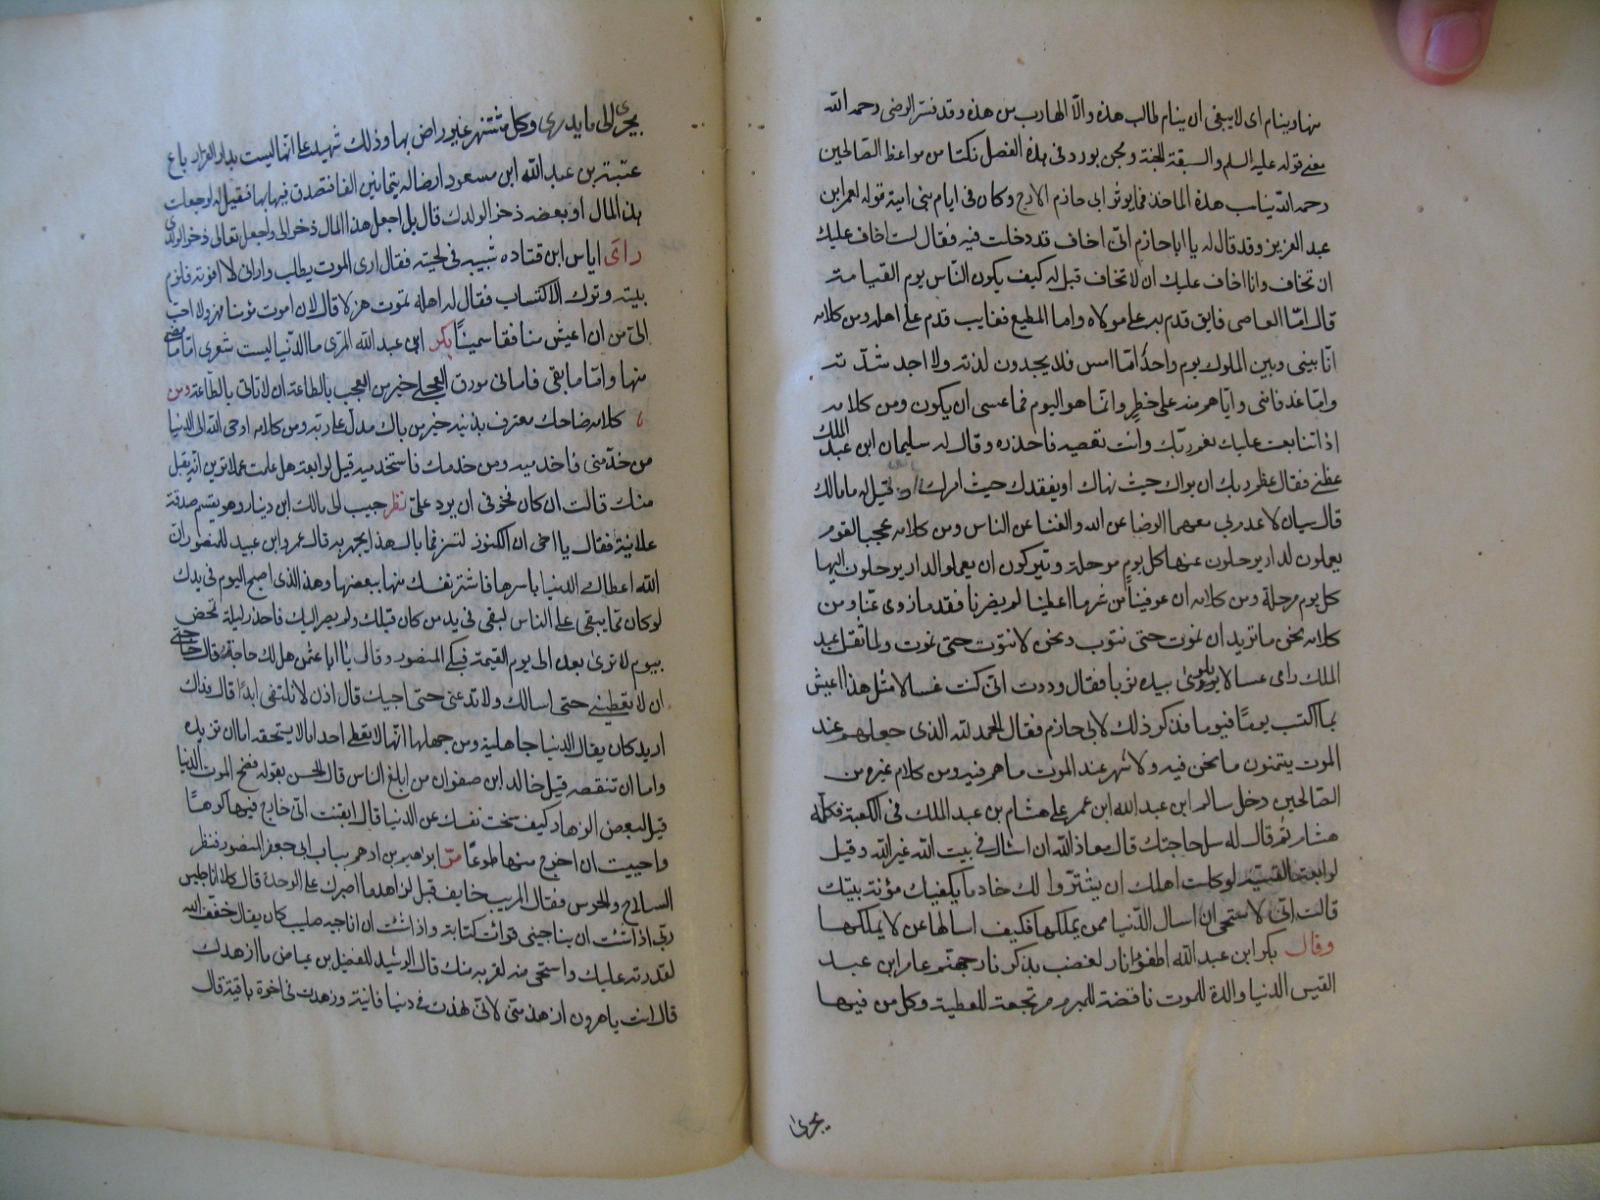 منها وينام اى لا يبقى ان ينام طالب هذه والا الهارب من هذه وقد فسر الرضى رحمه الله
معنى قوله عليه السلم والسبقة الجنة ونحن نورد فى هذه الفصل نكتا من مواعظ الصالحين
رحمه الله يناسب هذه الماخذ فما يوثر ابى حازم الاعرج وكان فى ايام بنى امية قوله لعمر ابن
عبد العزيز وقد قال له يا ابا حازم انى اخاف قد دخلت فيه فقال لست اخاف عليك
ان تخاف وانا اخاف عليك ان لا تخاف قيل له كيف يكون الناس يوم القيامة
قال امّا العاصى فابق قدم به على مولاه واما المطيع فغايب قدم على اهله ومن كلامه
انّا بينى وبين الملوك يوم واحد امّا امس فلا يجدون لذته ولا اجد شدّته
وامّا غد فانى وايّاهم منه على خطر وانّما هو اليوم فما عسى ان يكون ومن كلامه
اذا تتابعت عليك نعم ربّك وانت تعصيه فاحذره وقال له سليمان ابن عبد الملك
عظنى فقال عظم ربك ان يراك حيث نهاك او يفقدك حيث امرك وقيل له ما مالك
قال شيان لا عدم لى معهما الرضا عن الله والغنا عن الناس ومن كلامه عجب القوم
يعملون لدار يرحلون عنها كل يوم مرحلة ويتركون ان يعملو الدار يرحلون اليها
كل يوم مرحلة ومن كلامه ان عوفينا من شر ما اعطينا لم يضرنا فقد ما زوى عنّا ومن
كلامه نحن ما نريد ان نموت حتى نتوب ونحن لا نتوب حتى نموت ولما ثقل عبد
الملك راى غسالا يلوى بيده ثوبا فقال وددت انى كنت غسالا مثل هذا اعيش
بما اكتب يومًا فيوما فذكر ذلك لابى حازم فقال الحمد لله الذى جعلهم عند
الموت يتمنون ما نحن فيه ولا نتمنى عند الموت ما هم فيه ومن كلام غيره من
الصالحين دخل سالم ابن عبد الله ابن عمر على هشام بن عبد الملك فى الكعبة فكلمه
هشام ثم قال له سل حاجتك قال معاذ الله ان اسال فى بيت الله غير الله وقيل
لرابعة القيسية لو كلمت اهلك ان يشتروا لك خادما يكفيك مؤنة بيتك
قالت انى لاستحى ان اسال الدّنيا ممن يملكها فكيف اسالها عن لا يملكها
وقال بكر ابن عبد الله اطفؤا نار لغضب بذكر نار جهنم عامر ابن عبد
القيس الدنيا والدة للموت ناقضة للمبرم مرتجعة للعطية وكل من فيها
يجرى
يجرى الى ما يدرى وكل مستقر غير راض بها وذلك شهيد على انّها ليست بدار القرار باع
عتبة بن عبد الله ابن مسعود ارضا له بثمانين الفا فتصدق بها فقيل له لو جعلت
هذا المال او بعضه ذخرا لولدك قال بل اجعل هذا المال ذخرا لى واجعل تعالى ذخرا لولدى
راى اياس ابن قتاده شيبه فى لحيته فقال ارى الموت يطلب وارانى لا افوته فلزم
بيته وترك الاكتساب فقال له اهله تموت هزلا قال لان اموت مؤمنا مهزولا احب
الى من ان اعيش منافقا سمينًا بكر ابن عبد الله المزى ما الدّنيا ليت شعرى امّا ما مضى
منها وامّا ما بقى فامانى مورق العجلى خير من العجب بالطاعة ان لا تاتى بالطّاعة ومن
كلامه ضاحك معترف بذنبه خير من باك مدل على ربّه ومن كلامه اوحى الله الى الدّنيا
من خدمنى فاخدميه ومن خدمك فاستخدميه قيل لرابعة هل علمت عملا ترين انه يقبل
منك قالت ان كان فخوفى ان يرد علىّ نظر حبيب الى مالك ابن دينار وهو يقسم صدقة
علانية فقال يا اخى ان الكنوز لتستر فما بال هذا يجهر به قال عمرو ابن عبيد للمنصور ان
الله اعطاك الدنيا باسرها فاشتر نفسك منها ببعضها وهذا الذى اصبح اليوم فى يدك
لو كان مما يبقى على الناس لبقى فى يد من كان قبلك ولم يصر اليك فاحذر ليلة تمخض
بيوم لا ترى بعده الى يوم القيمة فبكى المنصور وقال يا ابا عثمن هل لك حاجة قال حاجتى
ان لا تعطينى حتى اسالك ولا تدعنى حتى اجيك قال اذن لا نلتقى ابدًا قال فذاك
اريد كان يقال الدنيا جاهلية ومن جهلها انّها لا يعطى احدا ما لا يستحقه اما ان تزيده
واما ان تنقصه قيل خالد ابن صفوان من ابلغ الناس قال الحسن بقوله فضح الموت الدنيا
قيل لبعض الزهاد كيف سخت نفسك عن الدنيا قال ايقنت انى خارج منها كرهًا
واحببت ان اخرج منها طوعًا مرّ ابراهيم بن ادهم بباب ابى جعفر المنصور فنظر
السلاح والحرس فقال المريب خايف قيل لزاهد ما اصبرك على الوحدة قال كلا انا جليس
ربى اذا شئت ان يناجينى قرات كتابه واذا شئت ان اناجيه صليت كان يقال خف الله
لقدرته عليك واستحى منه لقربه منك قال الرشيد للفضيل بن عياض ما ازهدك
قال انت يا هرون ازهد منّى لانّى زهدت فى دنيا فانية وزهدت فى اخرة باقية قال